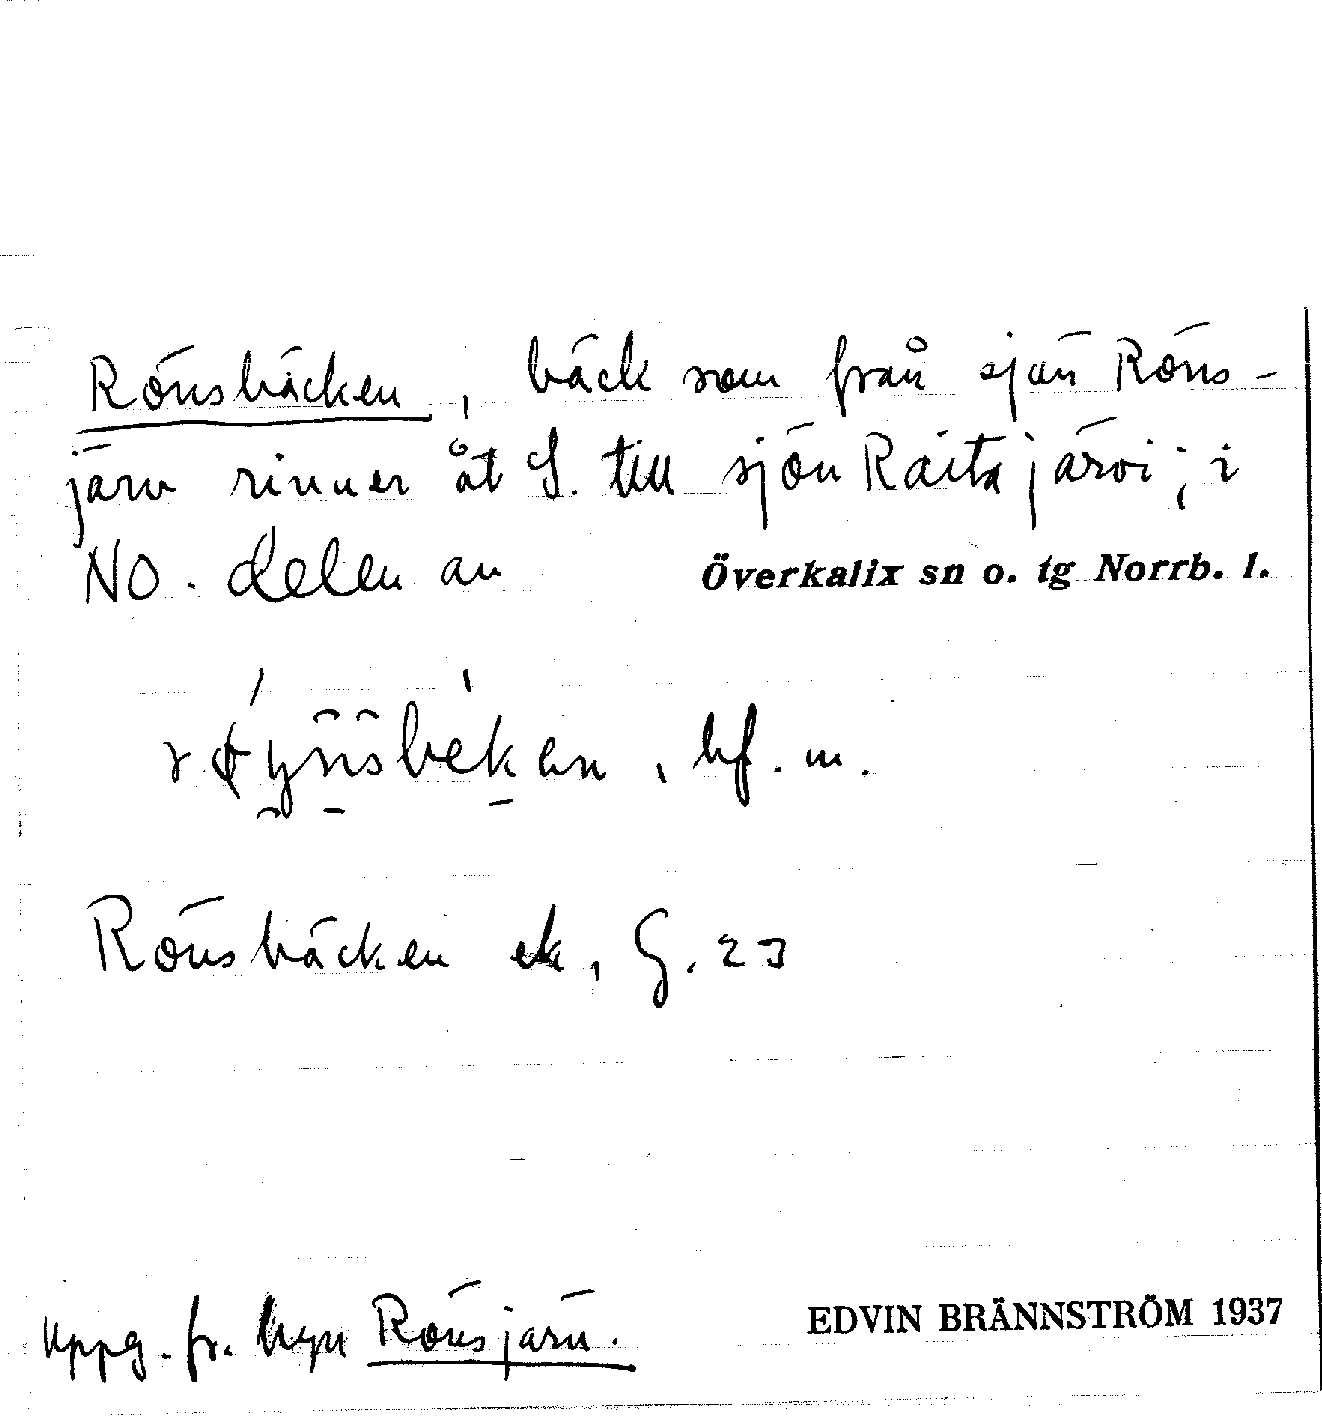 Rönsbäcken, bäck som från sjön Röns-
järv rinner åt S. till sjön Raitajärvi; i
NO. delen av Överkalix sn o. tg Norrb. l.
bf. m.
Rönsbäcken ek, G. 23
Uppg. fr. byn Rönsjärv.
EDVIN BRÄNNSTRÖM 1937